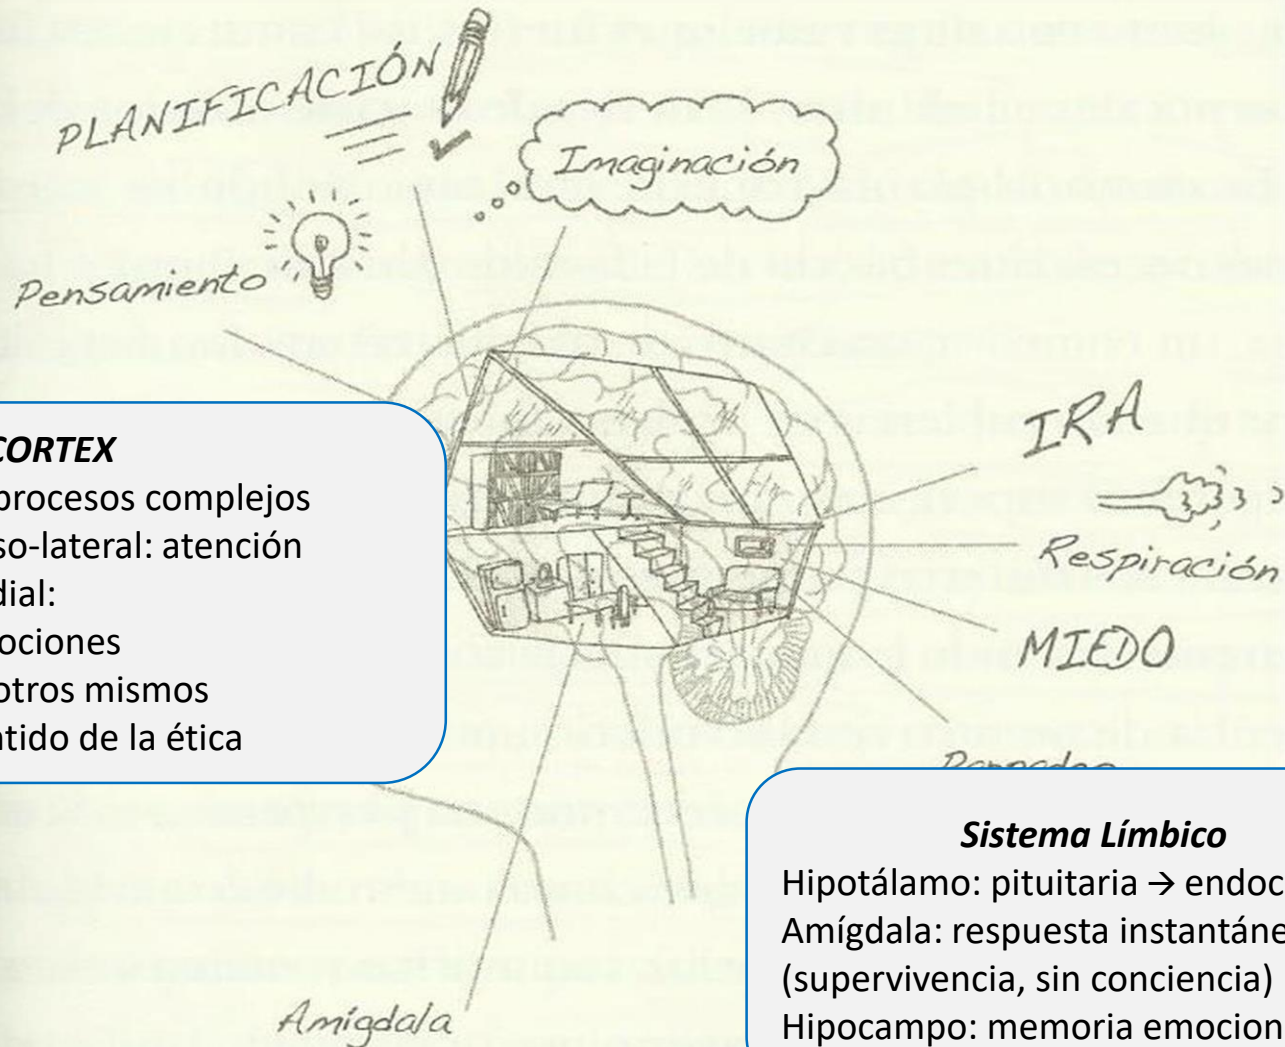 PLANIFICACIÓN
Imaginación
Pensamiento
IRA
Respiración
MIEDO
CORTEX
procesos complejos
so-lateral: atención
dial:
ociones
otros mismos
tido de la ética
Sistema Límbico
Hipotálamo: pituitaria → endoc
Amígdala: respuesta instantáne
(supervivencia, sin conciencia)
Hipocampo: memoria emocion
Amígdala